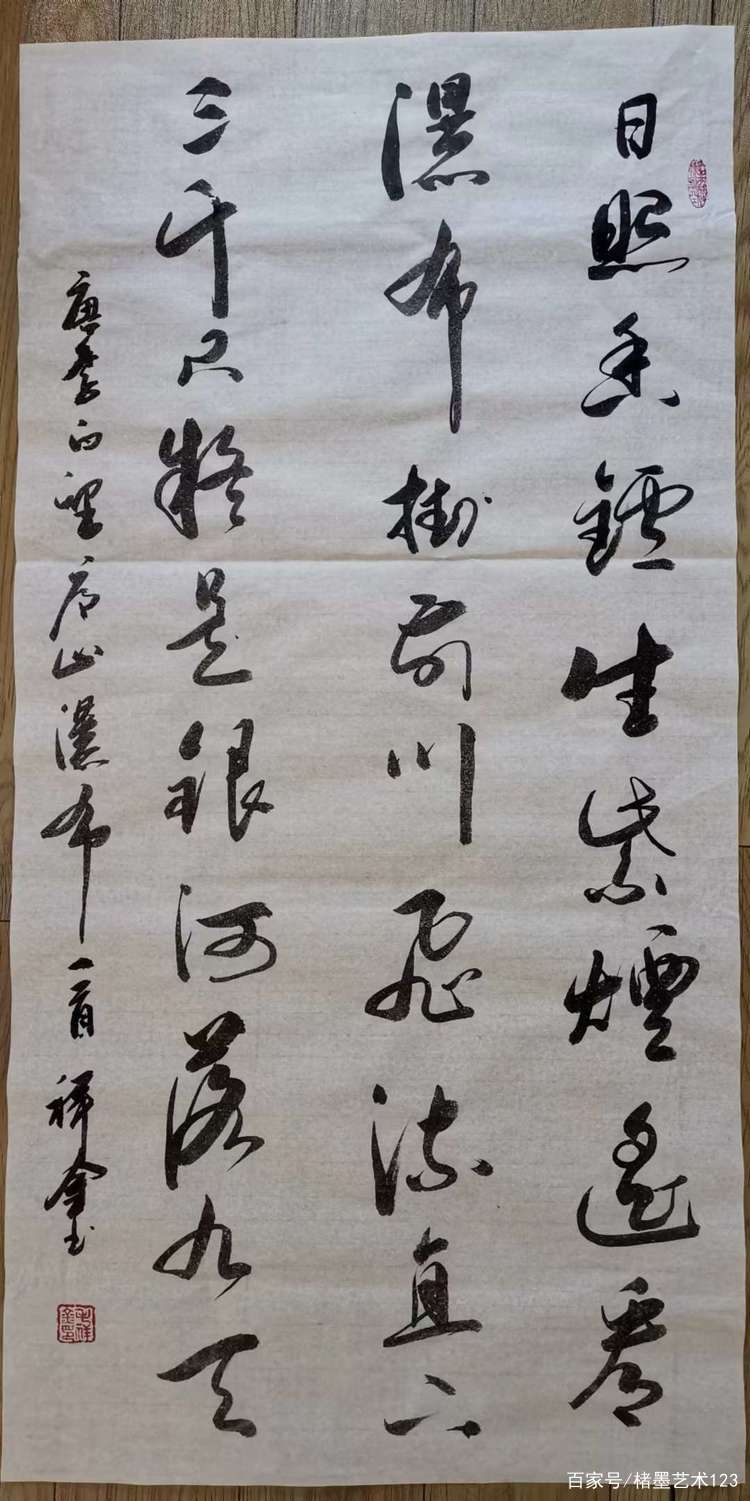 日照香鑪生紫煙遙看
瀑布掛前川飛流直下
三千尺疑是銀河落九天
唐李白望庐山瀑布一首 祥金书
百家号/楮墨艺术123